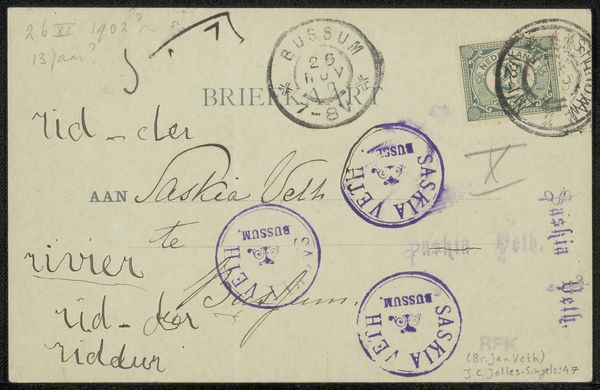 26 XI 1902?
13 jaar?
BUSSUM
26
NOV
7-8
BRIEFKAART
NEDERLAND
rid-der
AAN Saskia Veth
te
Bussum.
rivier
rid-der
riddur
SASKIA VETH
BUSSUM
SASKIA VETH
BUSSUM.
SASKIA VETH
BUSSUM
X
Saskia Veth.
Saskia Veth.
RPK
(Br. Jan Veth)
J.C. Jolles-Singels: 47